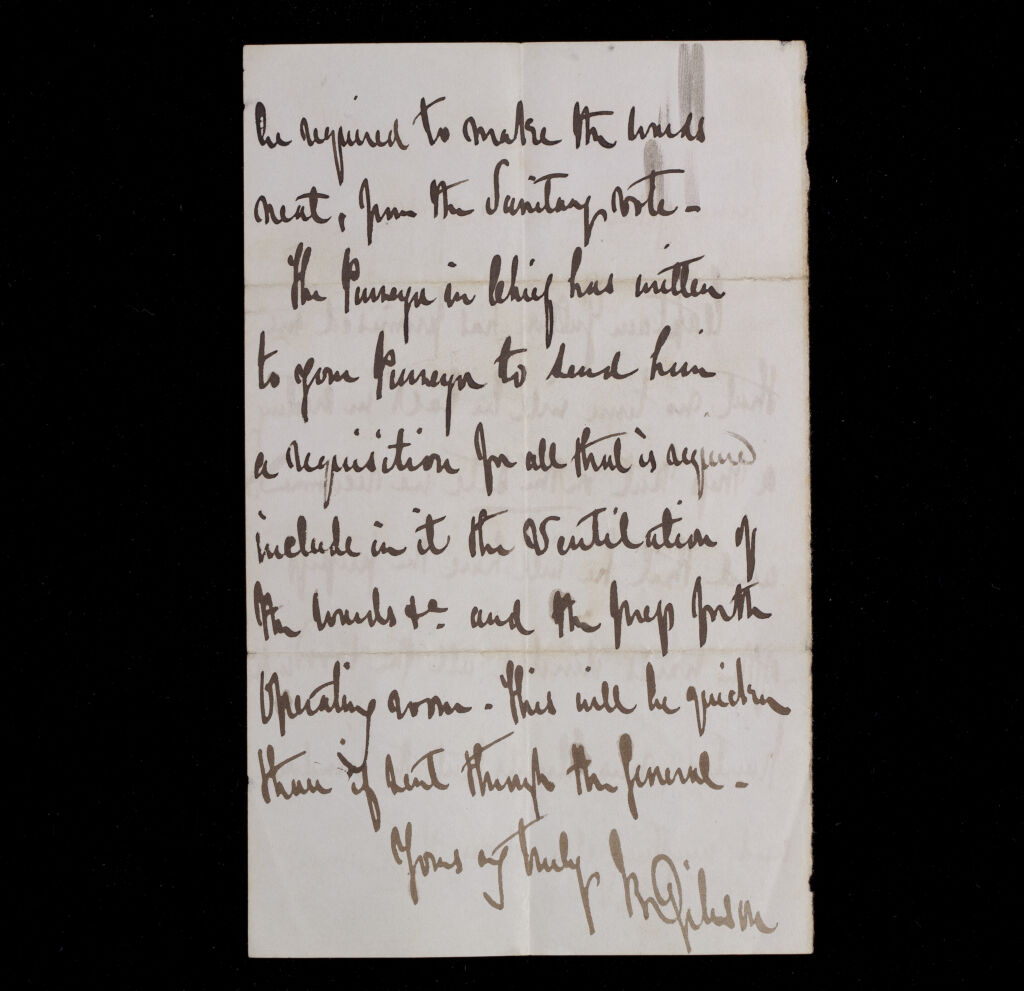 be required to make the wards
neat, from the Sanitary vote -
The Purveyor in Chief has written
to your Purveyor to send him
a requisition for all that is required
include in it the Ventilation of
the wards &c. and the for the
Operating room - This will be quicker
than if sent through the General -
Yours truly Gibson